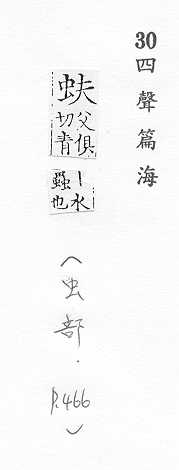 30四聲篇海
蚨
父俱
切青
丨水
蟲也
(虫部.P.466)